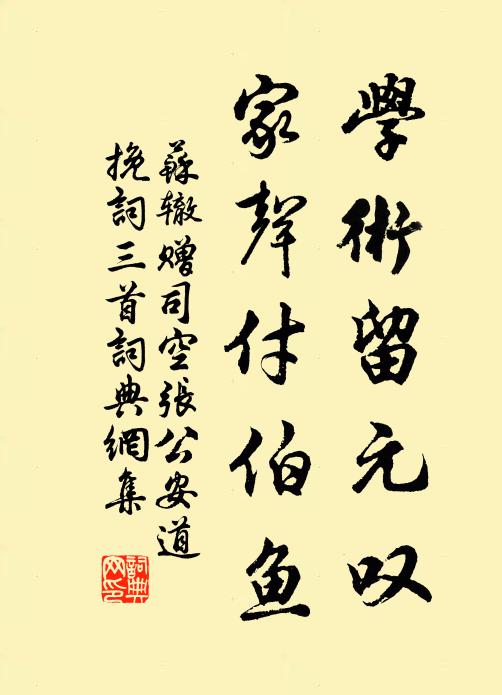 學術留元叹
家聲付伯魚
蘇辙赠司空張公安道
挽詞三首詞典網集
詞典網印